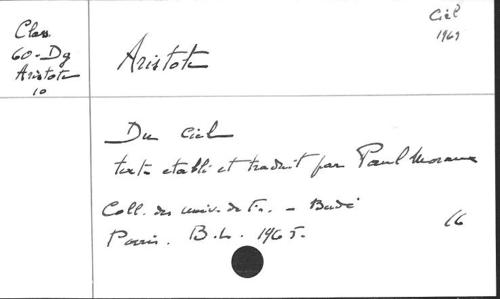 Class
60-Dg
Aristote
10
Ciel
1969
Aristote
Du Ciel
texte établi et traduit par Paul Moraux
Coll. des univ. de Fr. - Budé
Paris. B.L. 1965.
16